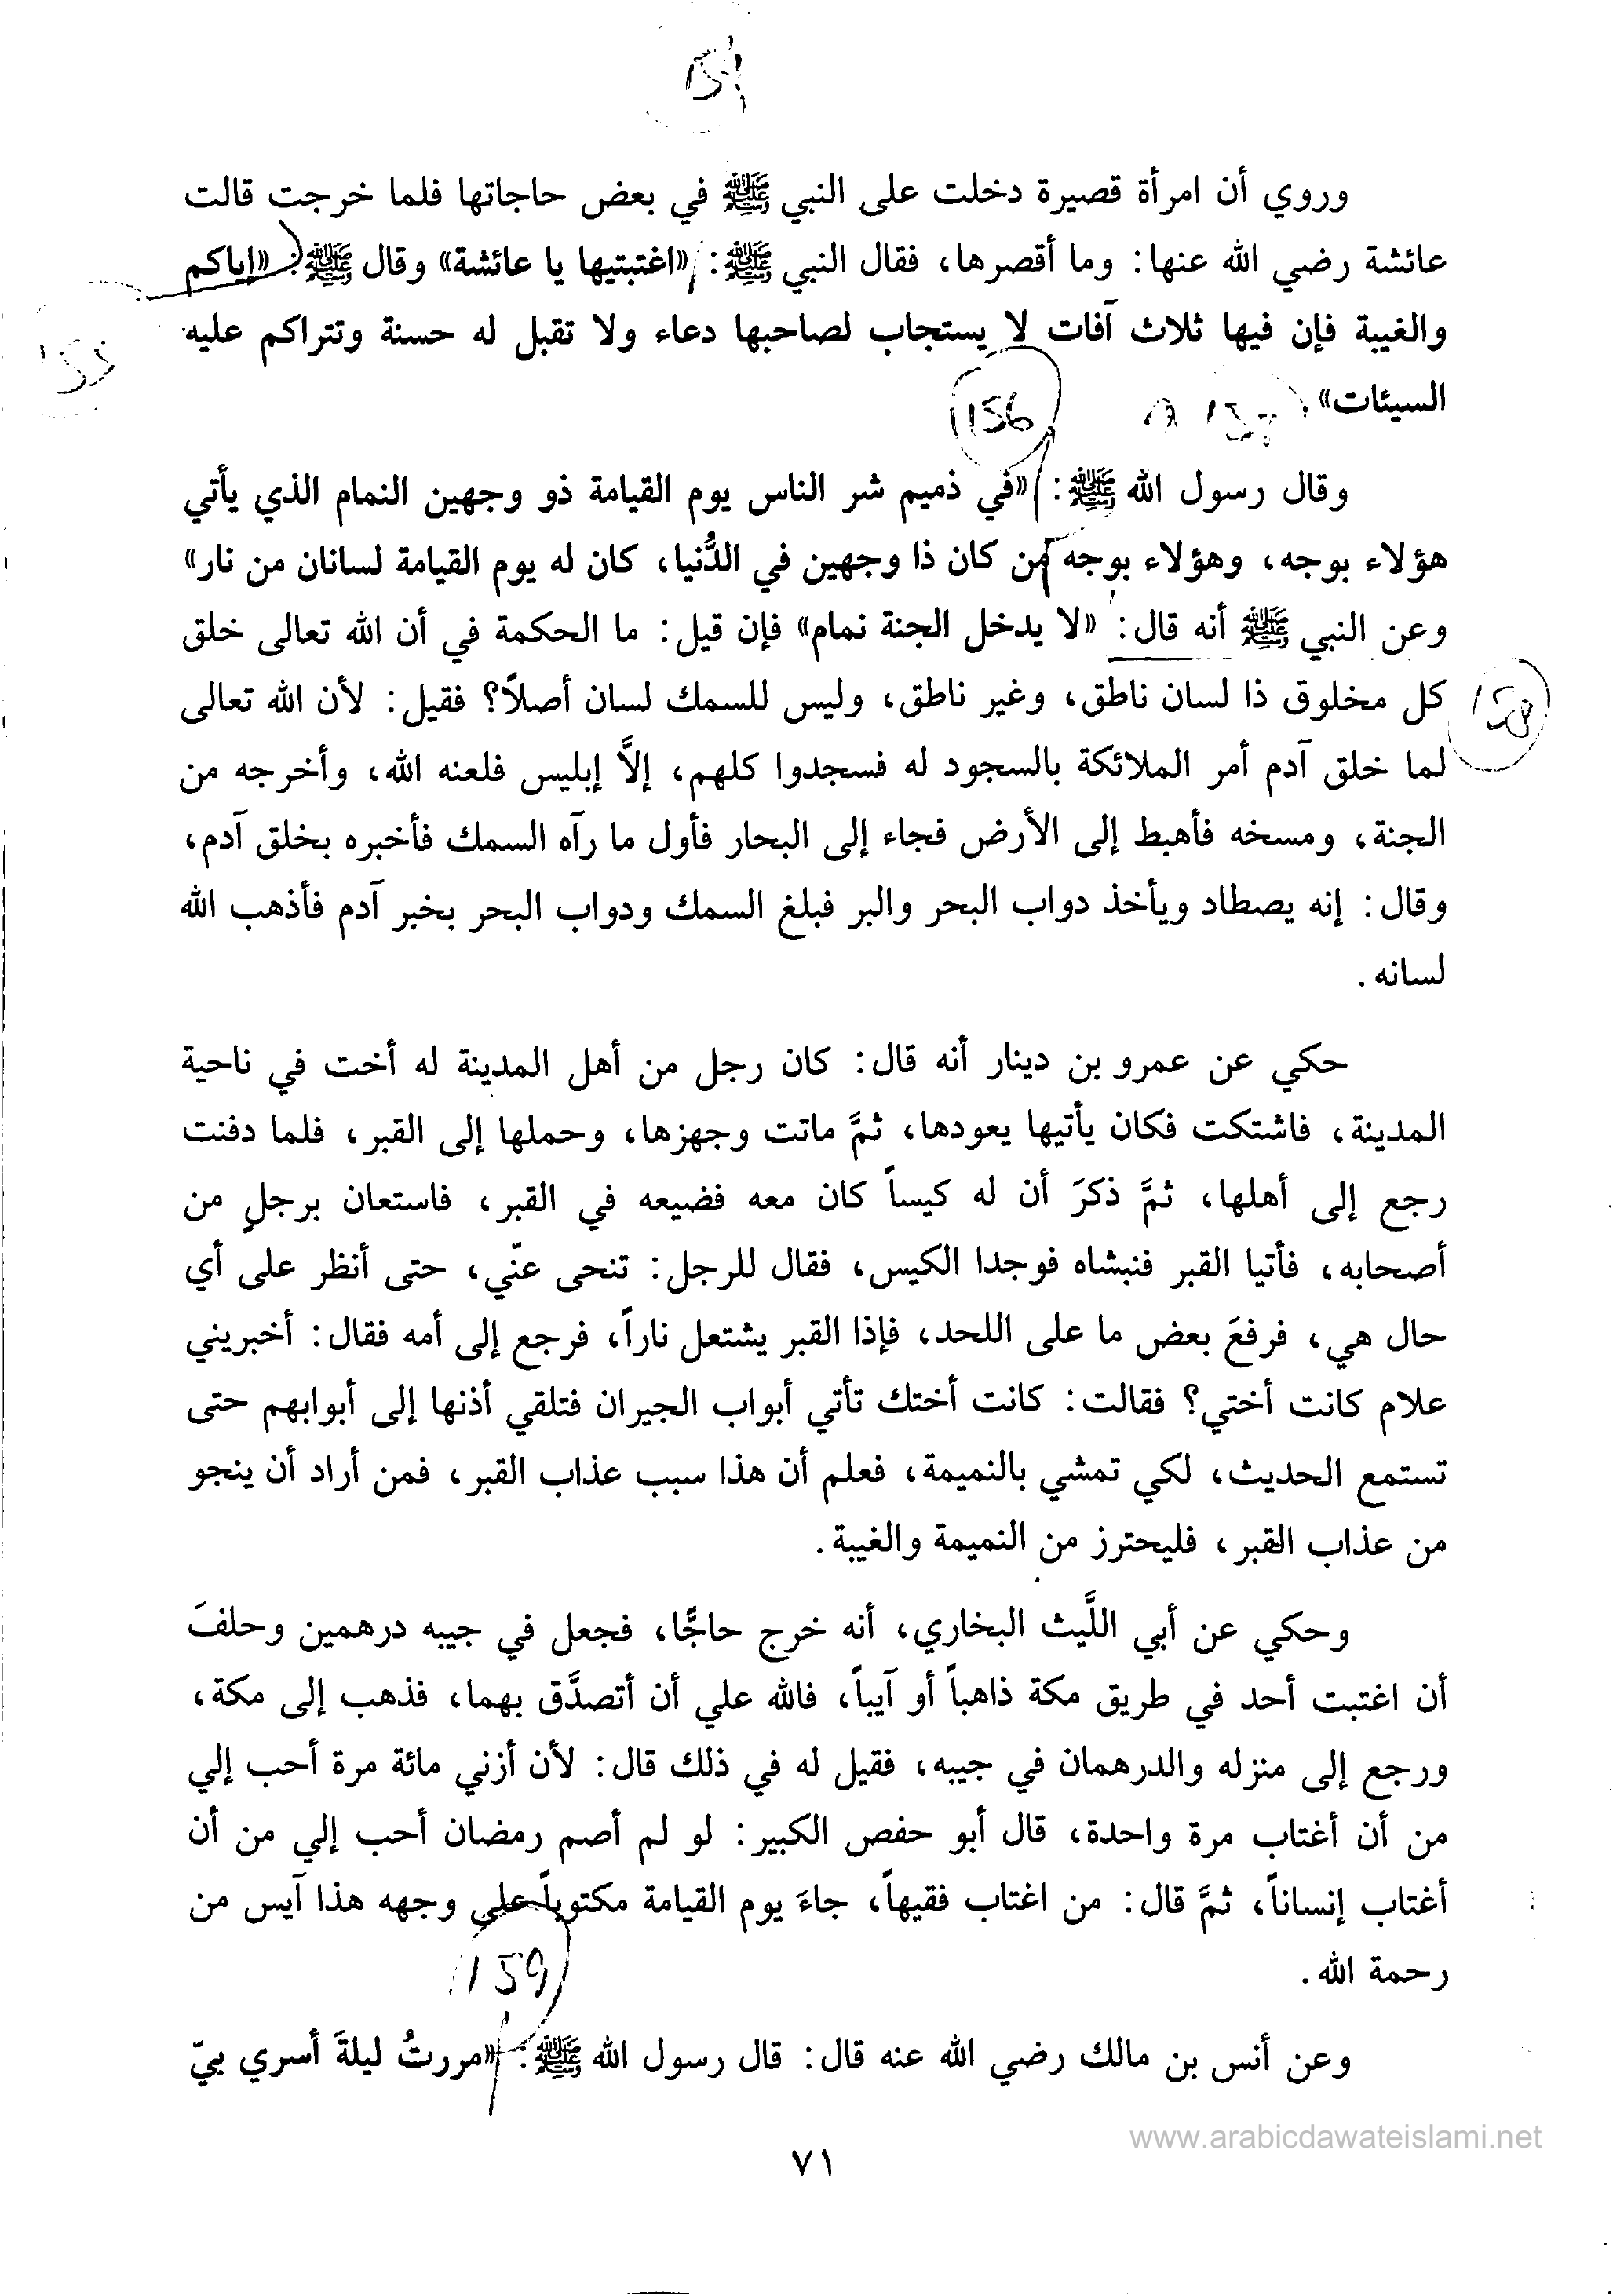 وروي أن امرأة قصيرة دخلت على النبي ﷺ في بعض حاجاتها فلما خرجت قالت
عائشة رضي الله عنها: وما أقصرها، فقال النبي ﷺ: «اغتبتيها يا عائشة» وقال ﷺ: «إياكم
والغيبة فإن فيها ثلاث آفات لا يستجاب لصاحبها دعاء ولا تقبل له حسنة وتتراكم عليه
155
السيئات»
156
وقال رسول الله ﷺ: «في ذميم شر الناس يوم القيامة ذو وجهين النمام الذي يأتي
هؤلاء بوجه، وهؤلاء بوجه من كان ذا وجهين في الدُّنيا، كان له يوم القيامة لسانان من نار»
وعن النبي ﷺ أنه قال: «لا يدخل الجنة نمام» فإن قيل: ما الحكمة في أن الله تعالى خلق
كل مخلوق ذا لسان ناطق، وغير ناطق، وليس للسمك لسان أصلاً؟ فقيل: لأن الله تعالى
158
لما خلق آدم أمر الملائكة بالسجود له فسجدوا كلهم، إلاَّ إبليس فلعنه الله، وأخرجه من
الجنة، ومسخه فأهبط إلى الأرض فجاء إلى البحار فأول ما رآه السمك فأخبره بخلق آدم،
وقال: إنه يصطاد ويأخذ دواب البحر والبر فبلغ السمك ودواب البحر بخبر آدم فأذهب الله
لسانه.
حكي عن عمرو بن دينار أنه قال: كان رجل من أهل المدينة له أخت في ناحية
المدينة، فاشتكت فكان يأتيها يعودها، ثمَّ ماتت وجهزها، وحملها إلى القبر، فلما دفنت
رجع إلى أهلها، ثمَّ ذكرَ أن له كيساً كان معه فضيعه في القبر، فاستعان برجلٍ من
أصحابه، فأتيا القبر فنبشاه فوجدا الكيس، فقال للرجل: تنحى عنّي، حتى أنظر على أي
حال هي، فرفعَ بعض ما على اللحد، فإذا القبر يشتعل ناراً، فرجع إلى أمه فقال: أخبريني
علام كانت أختي؟ فقالت: كانت أختك تأتي أبواب الجيران فتلقي أذنها إلى أبوابهم حتى
تستمع الحديث، لكي تمشي بالنميمة، فعلم أن هذا سبب عذاب القبر، فمن أراد أن ينجو
من عذاب القبر، فليحترز من النميمة والغيبة.
وحكي عن أبي اللَّيث البخاري، أنه خرج حاجًّا، فجعل في جيبه درهمين وحلفَ
أن اغتبت أحد في طريق مكة ذاهباً أو آيباً، فالله علي أن أتصدَّق بهما، فذهب إلى مكة،
ورجع إلى منزله والدرهمان في جيبه، فقيل له في ذلك قال: لأن أزني مائة مرة أحب إلي
من أن أغتاب مرة واحدة، قال أبو حفص الكبير: لو لم أصم رمضان أحب إلي من أن
أغتاب إنساناً، ثمَّ قال: من اغتاب فقيهاً، جاءَ يوم القيامة مكتوباً على وجهه هذا آيس من
رحمة الله.
159
وعن أنس بن مالك رضي الله عنه قال: قال رسول الله ﷺ: «مررتُ ليلةَ أسري بيّ
www.arabicdawateislami.net
٧١